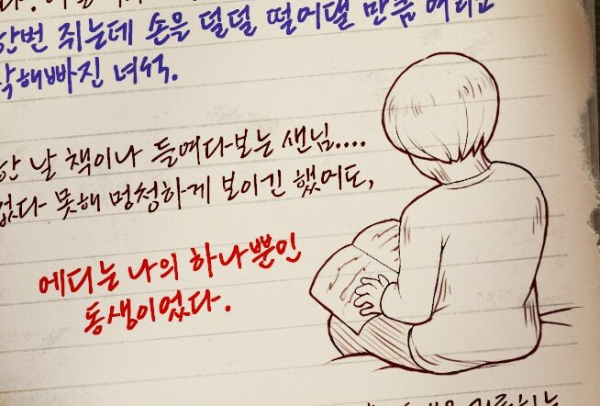 한번 쥐는데 손을 덜덜 떨어댈 만큼 여리고
착해빠진 녀석.
한 날 책이나 들여다보는 샌님....
없다 못해 멍청하게 보이긴 했어도,
에디는 나의 하나뿐인
동생이었다.